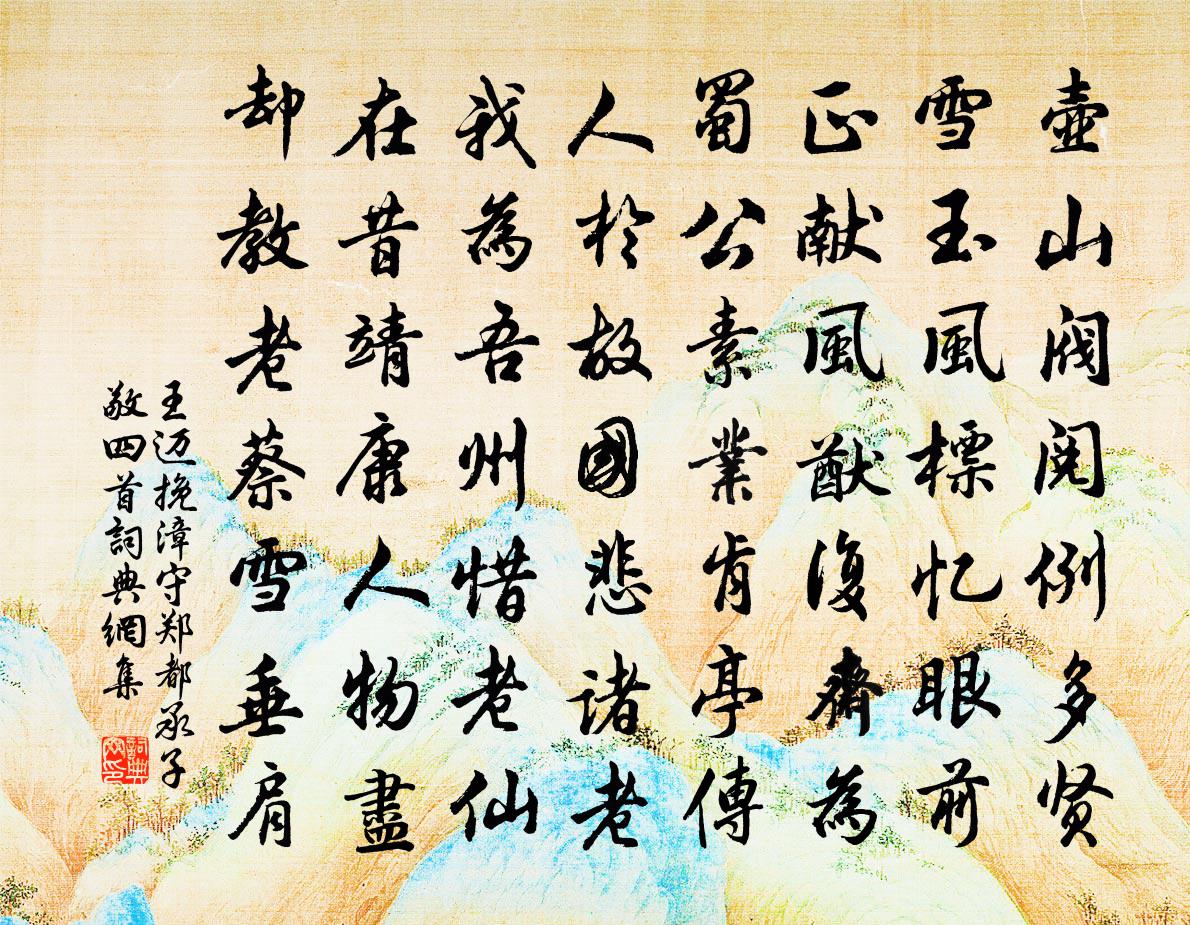 壺山阀阅例多贤
雪玉風標忆眼前
正献風猷復齋為
蜀公素業肯亭傳
人於故國悲諸老
我為吾州惜老仙
在昔靖康人物盡
却教老蔡雪垂肩
王迈挽漳守郑都承子
敬四首詞典網集